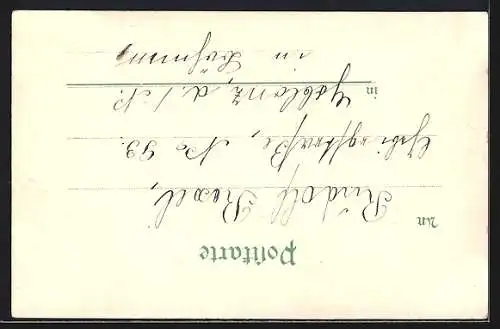 Postkarte
An Rudolf
Gebirgsstraße, No 93.
in Gablonz, a. / N.
in Böhmen